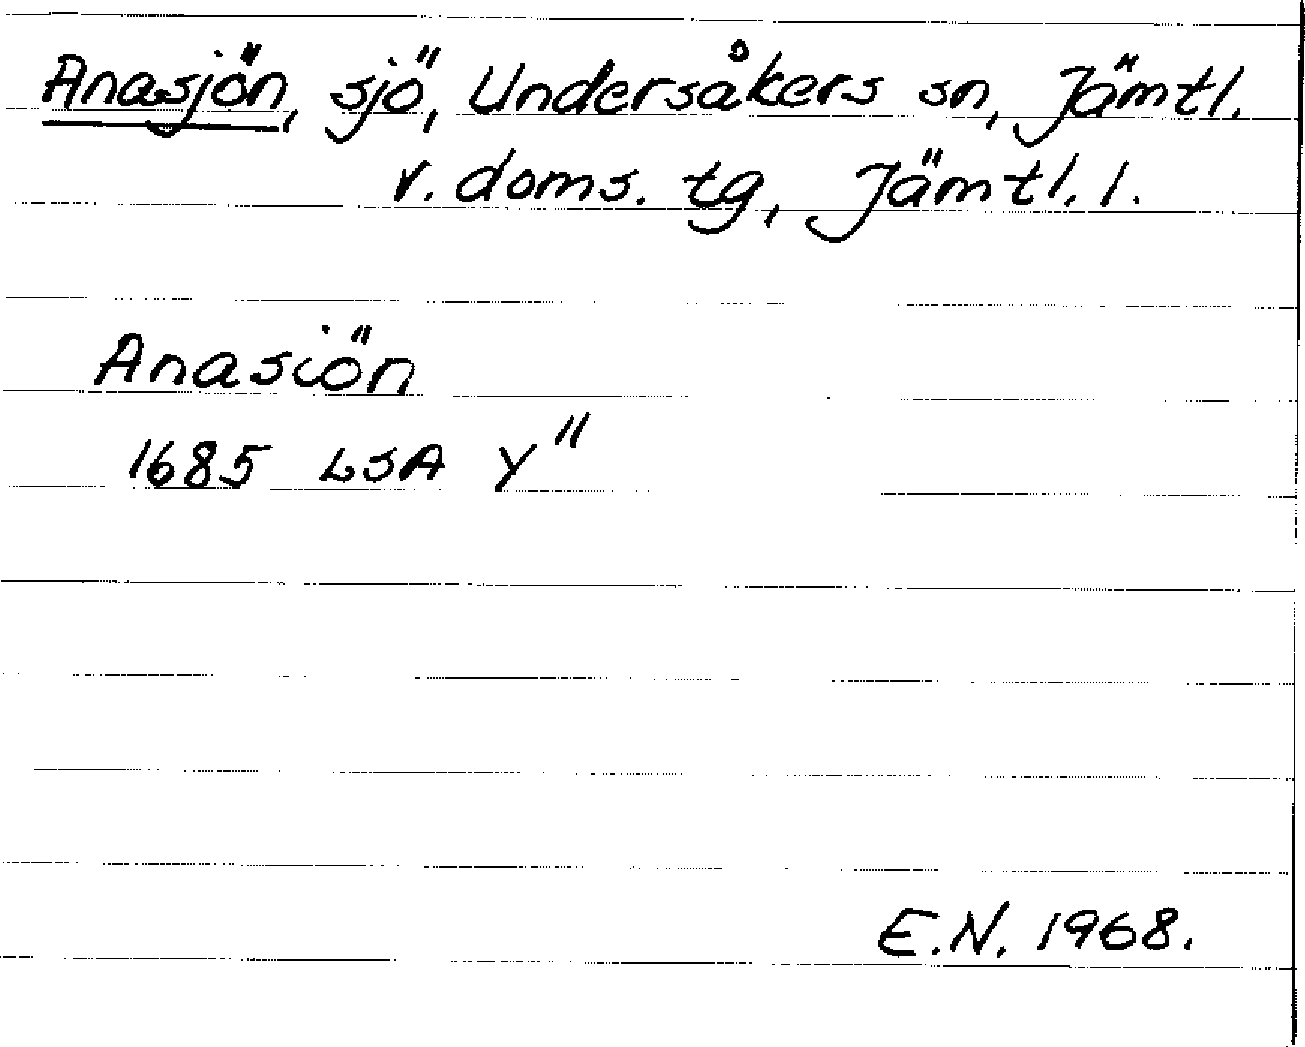 Anasjön, sjö, Undersåkers sn, Jämtl.
v. doms. tg, Jämtl. l.
Anasiön
1685 LSA Y"
E.N. 1968.